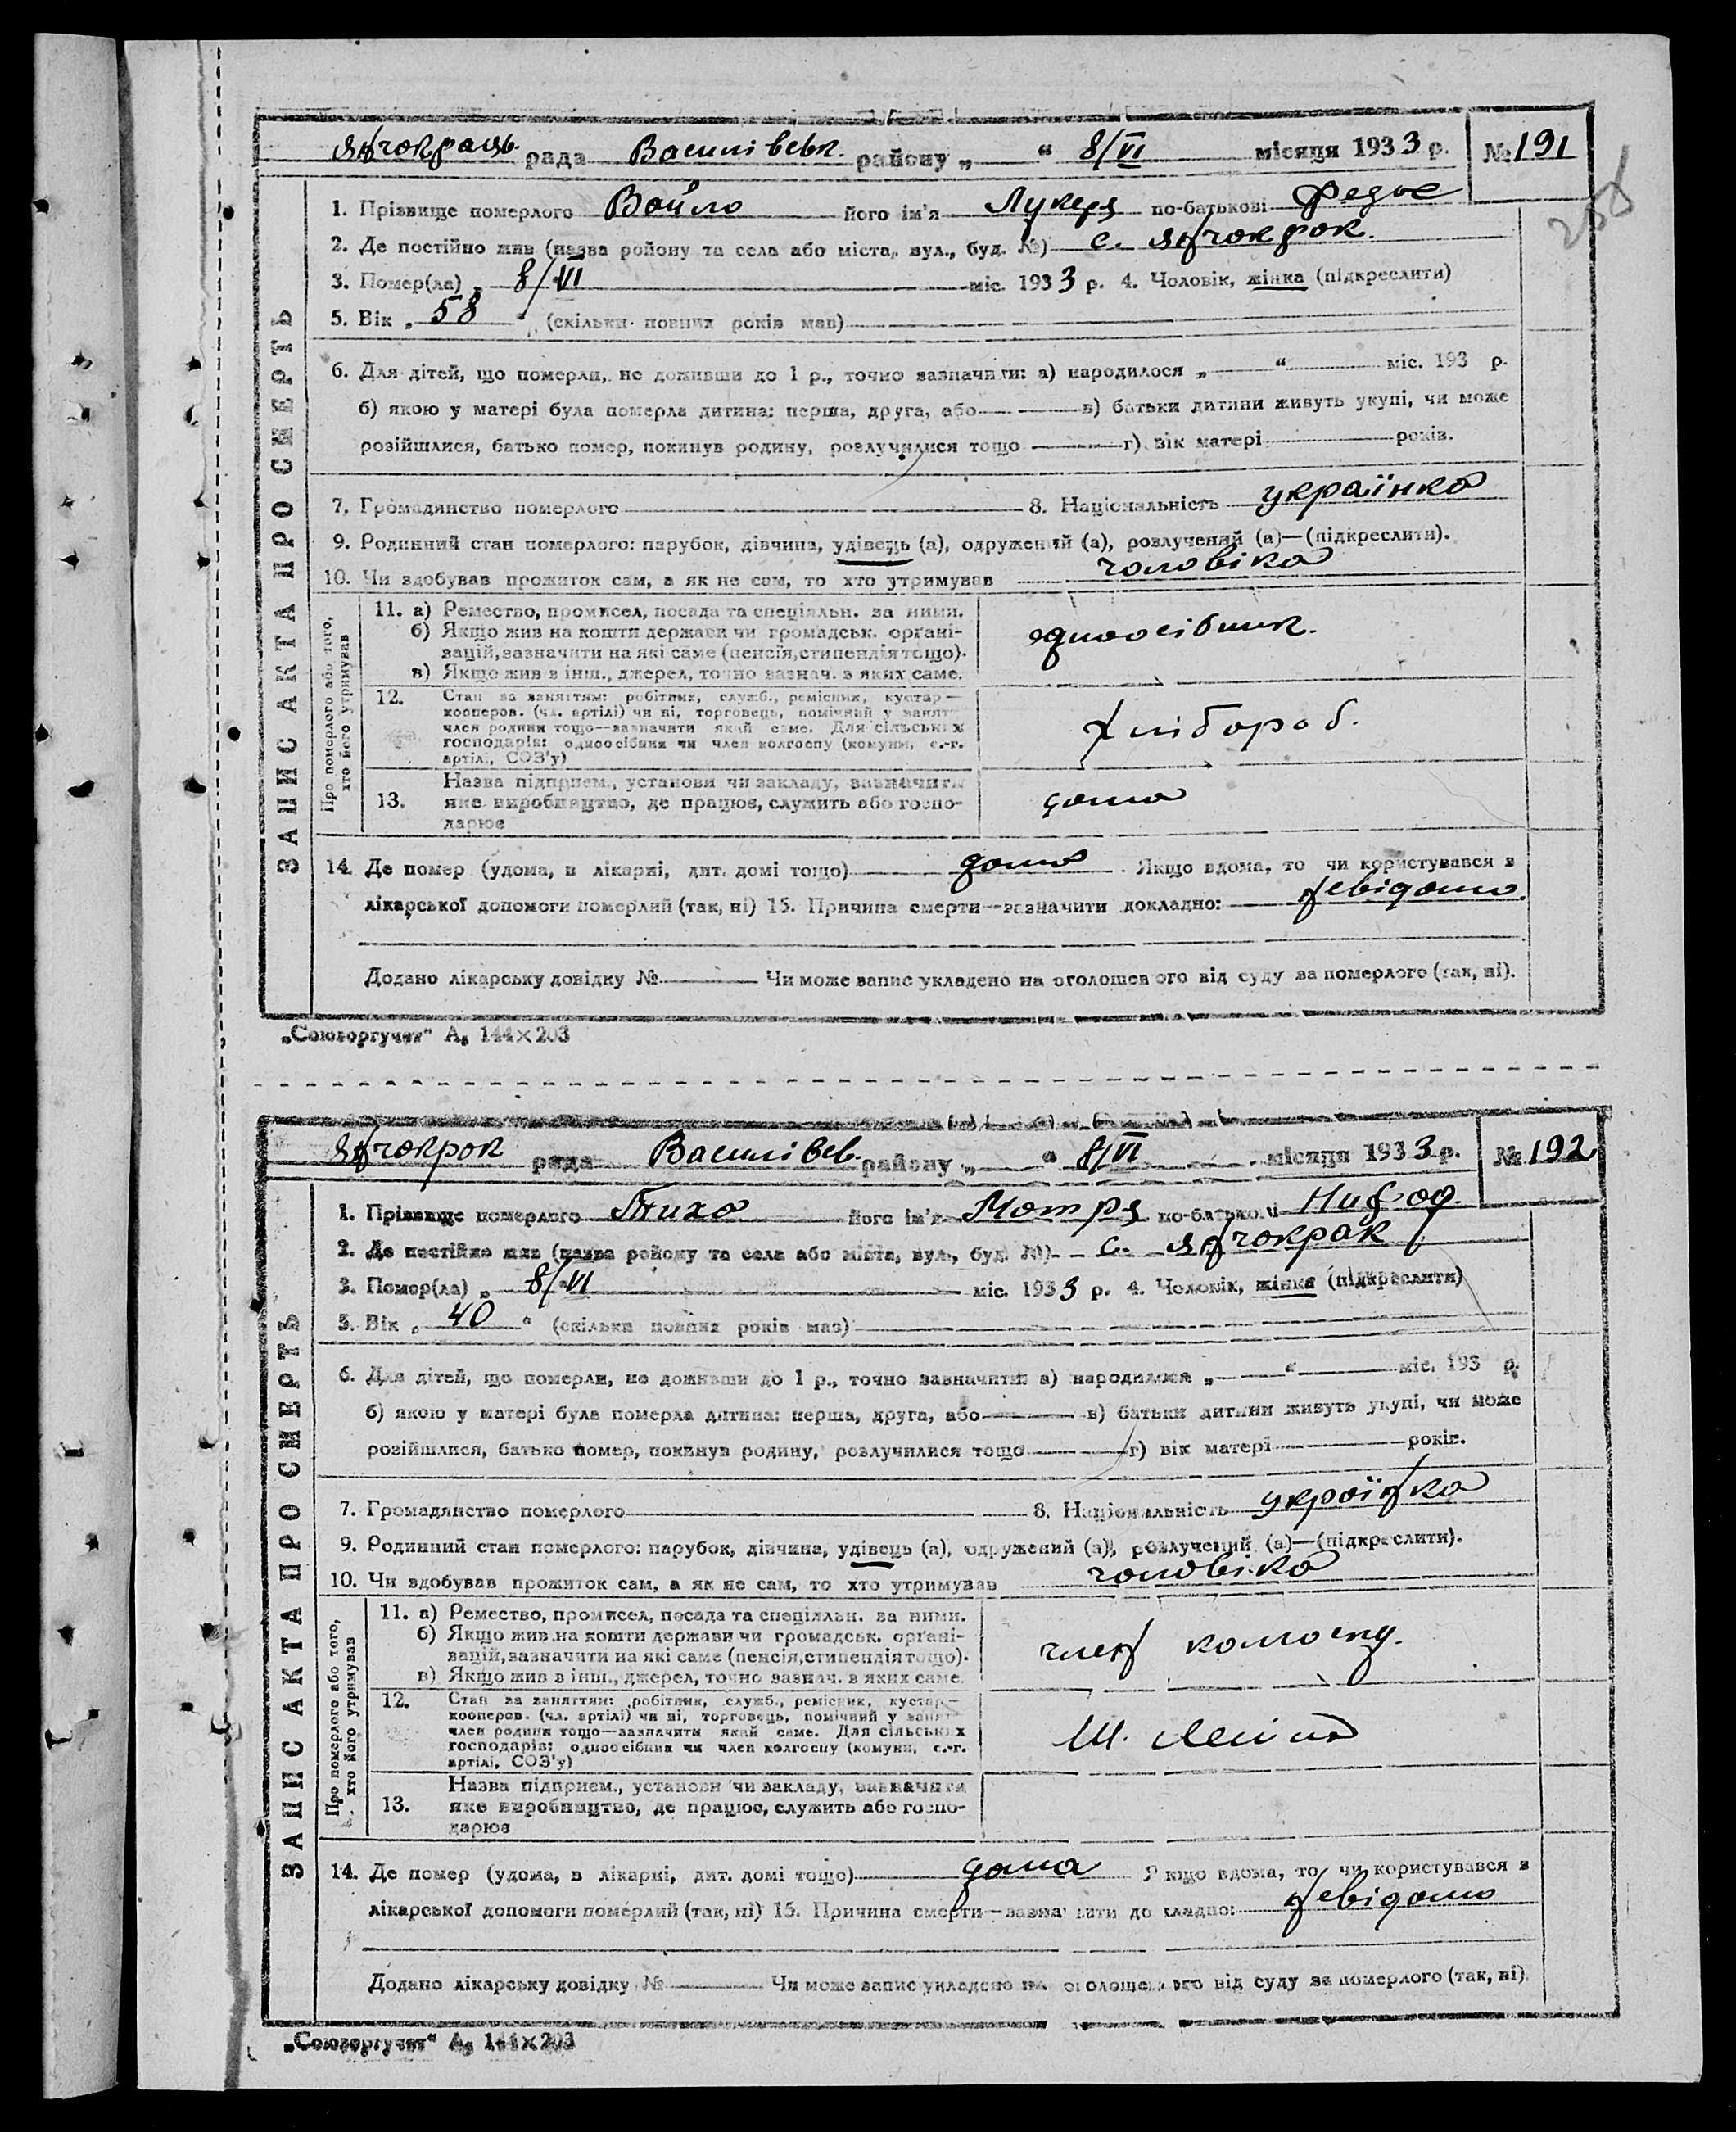 Янчокраць рада Василівськ. району „ “ 8/VI місяця 1933 р. № 191
258
1. Прізвище померлого Войло його ім'я Лукеря по-батькові Федос
2. Де постійно жив (назва району та села або міста, вул., буд. №) с. Янчокрак.
3. Помер(ла) „ 8/VI міс. 1933 р. 4. Чоловік, жінка (підкреслити)
5. Вік „ 58 “ (скільки повних років мав)
6. Для дітей, що померли, не доживши до 1 р., точно зазначити: а) народилося „ “ міс. 193 р.
б) якою у матері була померла дитина: перша, друга, або в) батьки дитини живуть укупі, чи може
розійшлися, батько помер, покинув родину, розлучилися тощо г) вік матері років.
7. Громадянство померлого 8. Національність українка
9. Родинний стан померлого: парубок, дівчина, удівець (а), одружений (а), розлучений (а)—(підкреслити).
10. Чи здобував прожиток сам, а як не сам, то хто утримував чоловіка
ЗАПИС АКТА ПРО СМЕРТЬ
Про померлого або того, хто його утримував
11. а) Ремество, промисел, посада та спеціяльн. за ними.
б) Якщо жив на кошти держави чи громадськ. органі-
зацій, зазначити на які саме (пенсія, стипендія тощо).
в) Якщо жив з інш., джерел, точно зазнач. з яких саме.
одноосібник.
12. Стан за заняттям: робітник, служб., ремісник, кустар—
кооперов. (чл. артілі) чи ні, торговець, помічний у занят.
член родини тощо—зазначити який саме. Для сільських
господарів: одноосібник чи член колгоспу (комуни, с.-г.
артілі, СОЗ'у)
хлібороб.
13. Назва підприєм., установи чи закладу, зазначити
яке виробництво, де працює, служить або госпо-
дарює
дома
14. Де помер (удома, в лікарні, дит. домі тощо) дома . Якщо вдома, то чи користувався з
лікарської допомоги померлий (так, ні) 15. Причина смерти—зазначити докладно: невідомо.
Додано лікарську довідку № Чи може запис укладено на оголошеного від суду за померлого (так, ні).
„Союзоргучет“ А₅ 144×203
Янчокрак рада Василівсь. району „ “ 8/VI місяця 1933 р. № 192
1. Прізвище померлого Тихо його ім'я Мотря по-батькові Никод.
2. Де постійно жив (назва району та села або міста, вул., буд. №) с. Янчокрак
3. Помер(ла) „ 8/VI міс. 1933 р. 4. Чоловік, жінка (підкреслити)
5. Вік „ 40 “ (скільки повних років мав)
6. Для дітей, що померли, не доживши до 1 р., точно зазначити: а) народилося „ “ міс. 193 р.
б) якою у матері була померла дитина: перша, друга, або в) батьки дитини живуть укупі, чи може
розійшлися, батько помер, покинув родину, розлучилися тощо г) вік матері років.
7. Громадянство померлого 8. Національність українка
9. Родинний стан померлого: парубок, дівчина, удівець (а), одружений (а), розлучений (а)—(підкреслити).
10. Чи здобував прожиток сам, а як не сам, то хто утримував чоловіка
ЗАПИС АКТА ПРО СМЕРТЬ
Про померлого або того, хто його утримував
11. а) Ремество, промисел, посада та спеціяльн. за ними.
б) Якщо жив на кошти держави чи громадськ. органі-
зацій, зазначити на які саме (пенсія, стипендія тощо).
в) Якщо жив з інш., джерел, точно зазнач. з яких саме.
член колгоспу.
12. Стан за заняттям: робітник, служб., ремісник, кустар—
кооперов. (чл. артілі) чи ні, торговець, помічний у занят.
член родини тощо—зазначити який саме. Для сільських
господарів: одноосібник чи член колгоспу (комуни, с.-г.
артілі, СОЗ'у)
Ш. Леніна
13. Назва підприєм., установи чи закладу, зазначити
яке виробництво, де працює, служить або госпо-
дарює
14. Де помер (удома, в лікарні, дит. домі тощо) дома Якщо вдома, то чи користувався з
лікарської допомоги померлий (так, ні) 15. Причина смерти—зазначити докладно: невідомо
Додано лікарську довідку № Чи може запис укладено на оголошеного від суду за померлого (так, ні).
„Союзоргучет“ А₅ 144×203